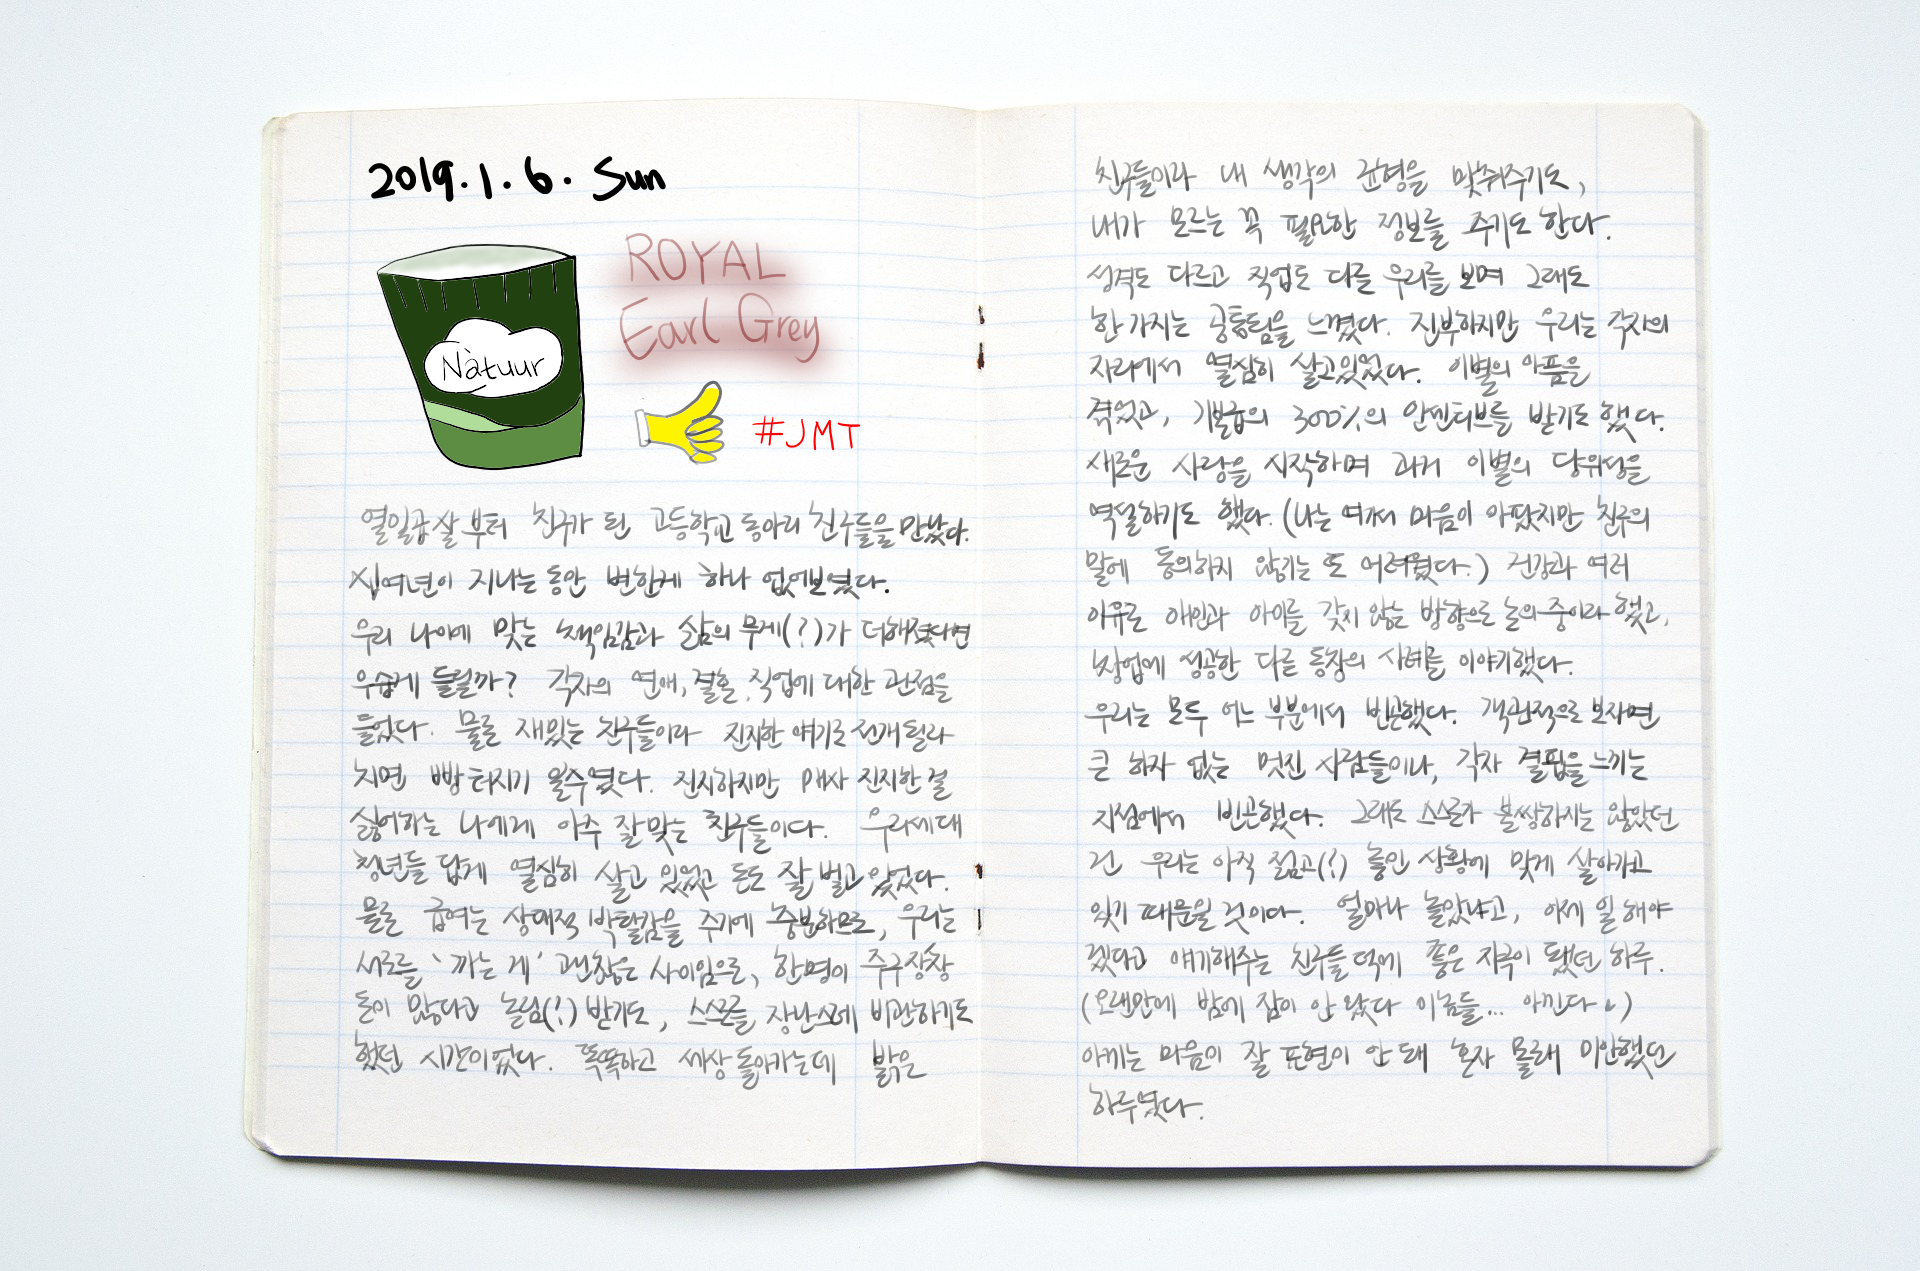 2019.1.6. Sun
ROYAL
Earl Grey
Nàtuur
#JMT
열일곱살부터 친구가 된 고등학교 동아리 친구들을 만났다.
십여년이 지나는 동안 변한게 하나 없어보였다.
우리 나이에 맞는 책임감과 삶의 무게(?)가 더해졌다면
우습게 들릴까? 각자의 연애, 결혼, 직업에 대한 관점을
들었다. 물론 재밌는 친구들이라 진지한 얘기로 전개될라
치면 빵 터지기 일수였다. 진지하지만 매사 진지한 걸
싫어하는 나에게 아주 잘맞는 친구들이다. 우리세대
청년들 답게 열심히 살고 있었고 돈도 잘 벌고 있었다.
물론 급여는 상대적 박탈감을 주기에 충분하므로, 우리는
서로를 '까는 게' 괜찮은 사이임으로, 한명이 주구장창
돈이 많다고 놀림(?) 받기도, 스스로를 장난스레 비관하기도
했던 시간이었다. 똑똑하고 세상 돌아가는데 밝은
친구들이라 내 생각의 균형을 맞춰주기도,
내가 모르는 꼭 필요한 정보를 주기도 한다.
성격도 다르고 직업도 다를 우리를 보며 그래도
한가지는 공통됨을 느꼈다. 진부하지만 우리는 각자의
자리에서 열심히 살고있었다. 이별의 아픔을
겪었고, 기본급의 300%의 인센티브를 받기도 했다.
새로운 사랑을 시작하며 과거 이별의 당위성을
역설하기도 했다. (나는 여기서 마음이 아팠지만 친구의
말에 동의하지 않기는 또 어려웠다.) 건강과 여러
이유로 애인과 아이를 갖지 않는 방향으로 논의중이라 했고,
창업에 성공한 다른 동창의 사례를 이야기했다.
우리는 모두 어느 부분에서 빈곤했다. 객관적으로 보자면
큰 하자 없는 멋진 사람들이나, 각자 결핍을 느끼는
지점에서 빈곤했다. 그래도 스스로가 불쌍하지는 않았던
건 우리는 아직 젊고(?) 놓인 상황에 맞게 살아가고
있기 때문일 것이다. 얼마나 놀았냐고, 이제 일 해야
겠다고 얘기해주는 친구들 덕에 좋은 자극이 됐던 하루.
(오랜만에 밤에 잠이 안 왔다 이놈들... 아낀다)
아끼는 마음이 잘 표현이 안 돼 혼자 몰래 미안했던
하루였다.